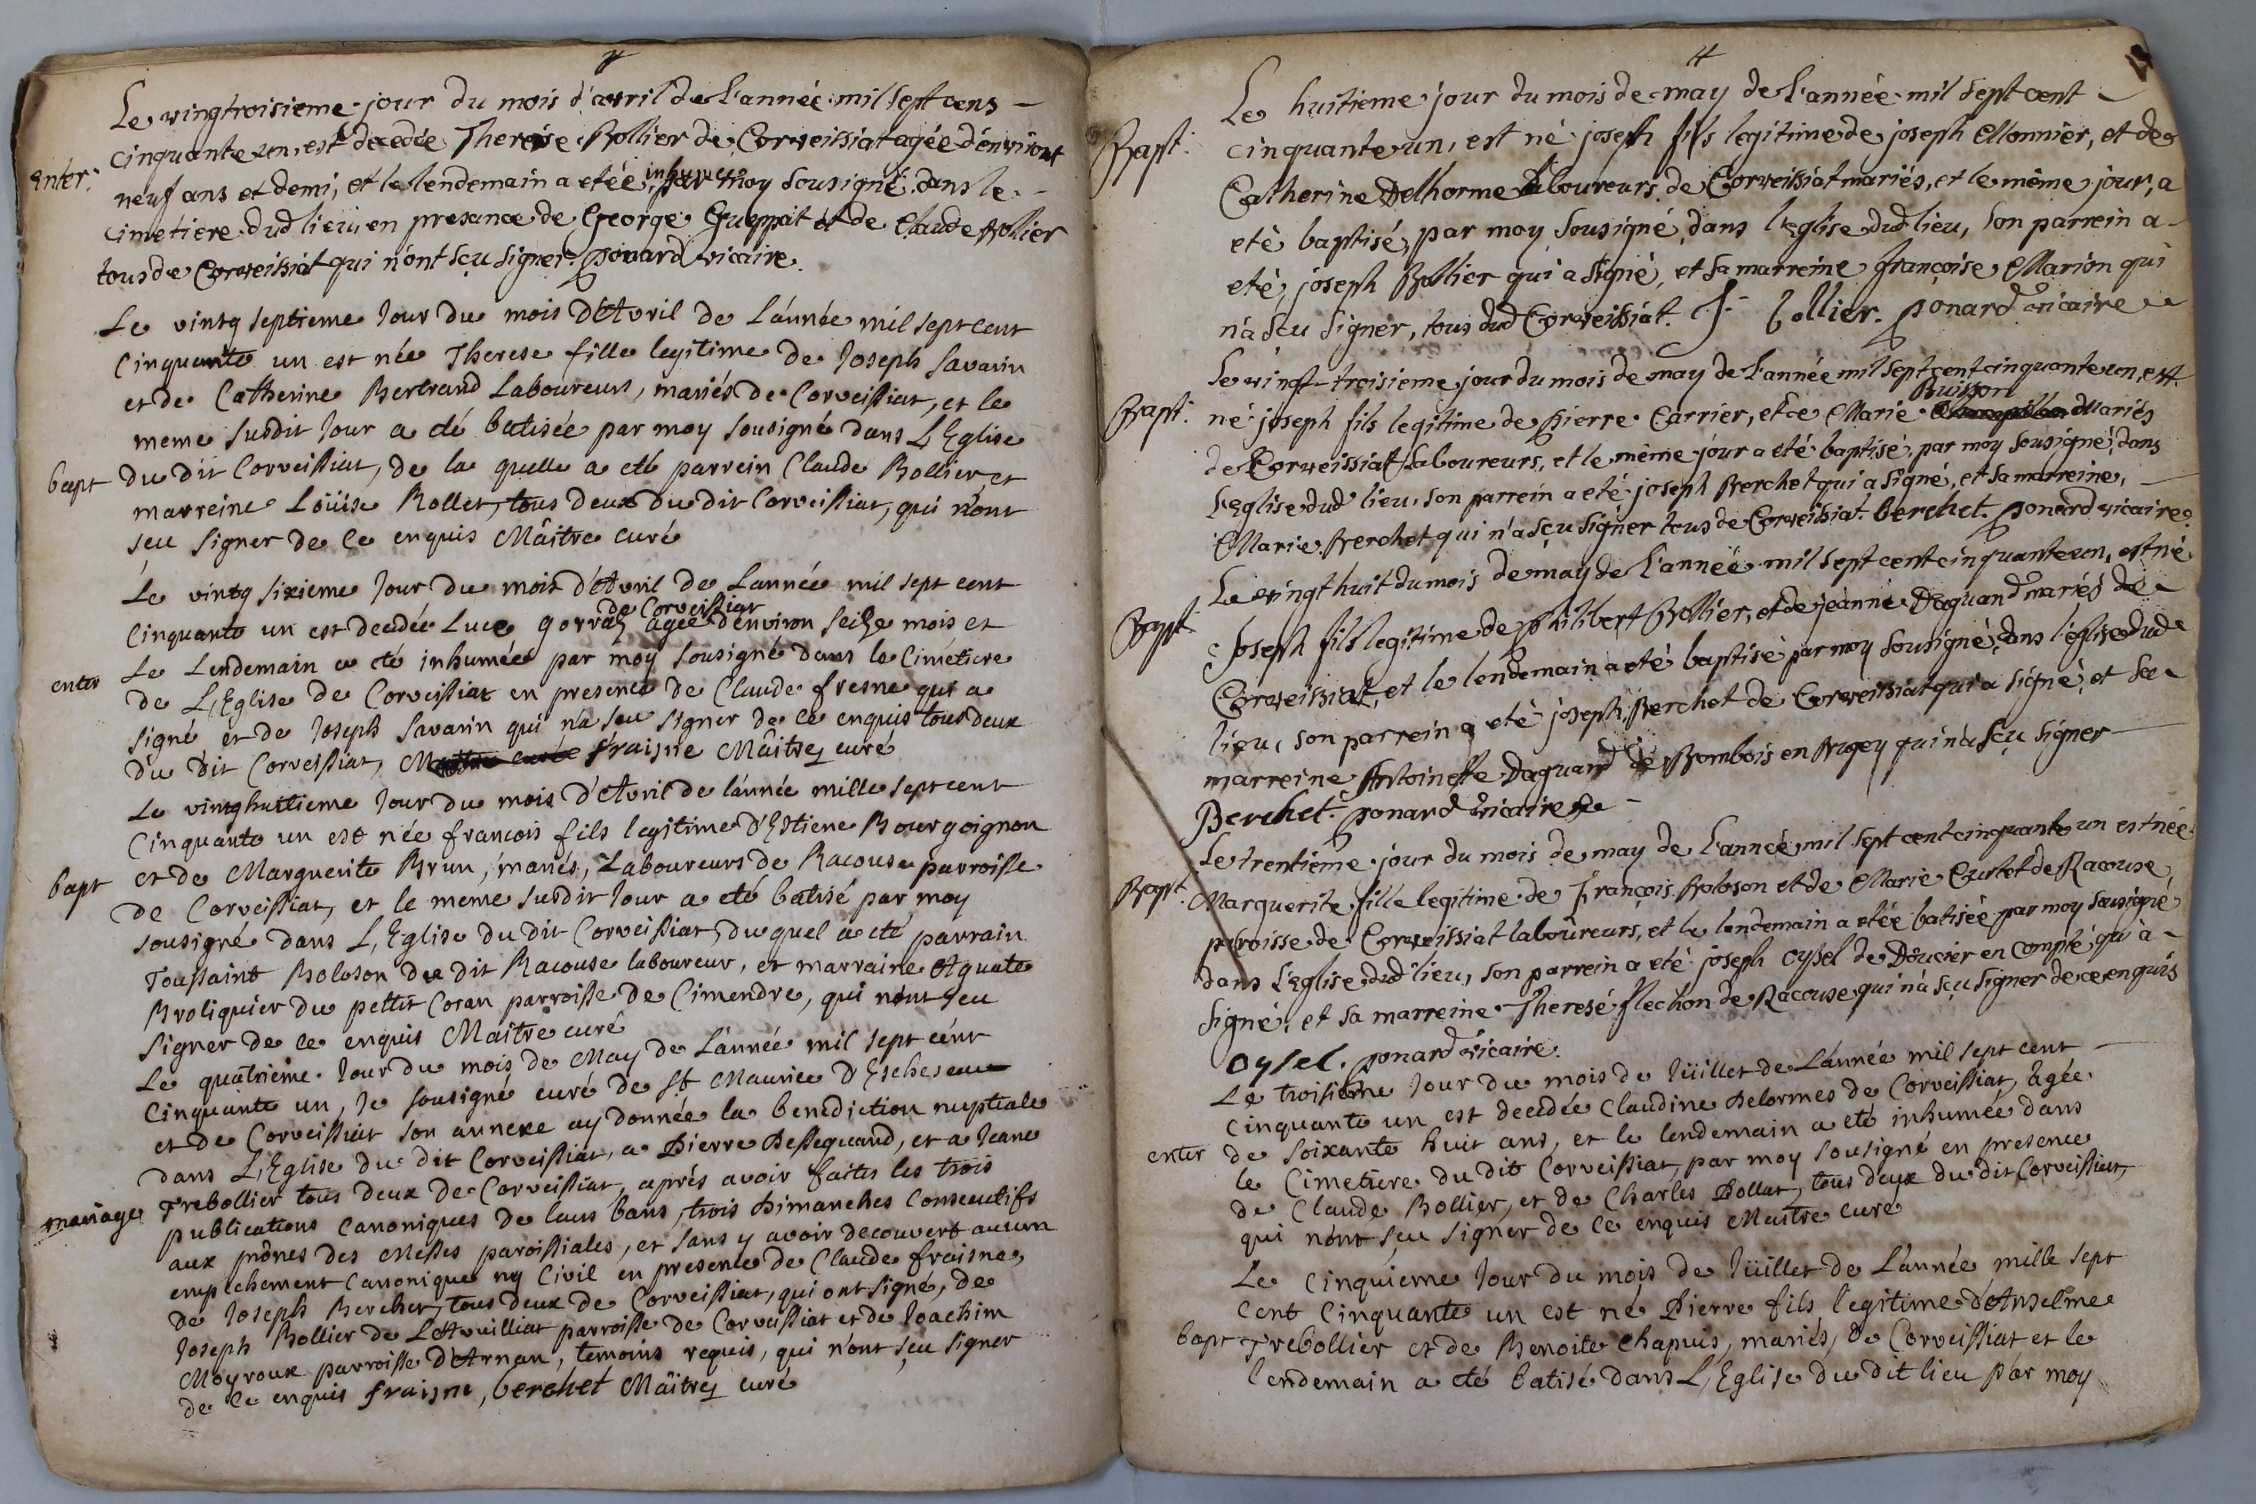 Le vingtroisieme jour du mois d'avril de l'année mil sept cens
enter: cinquante un, est decedée Therese Bollier de Corveissiat agée d'environt
neuf ans et demi, et le lendemain a etée inhumée par moy sousigné dans le
cimetiere dud lieu en presance de George Gueppat et de Claude Bollier
tous de Corveissiat qui n'ont sçu signer. ponard vicaire.
Le vintg septieme Jour du mois d'Avril de L'année mil sept cent
Cinquante un est née Therese fille legitime de Joseph Savarin
et de Catherine Bertrand Laboureurs, mariés de Corveissiat, et le
meme susdit Jour a eté batisée par moy sousigné dans L'Eglise
bapt du dit Corveissiat, de la quelle a eté parrein Claude Bollier, et
marreine Loüise Rollet, tous deux du dit Corveissiat, qui n'ont
sçu signer de ce enquis Mâitre curé
Le vintg sixieme Jour du mois d'Avril de Lannée mil sept cent
Cinquante un est decedée Luce gorraz de Corveissiat agée d'environ seize mois et
enter Le Lendemain a eté inhumée par moy sousigné dans le Cimetiere
de L'Eglise de Corveissiat en presence de Claude fresne qui a
signé et de Joseph Savarin qui n'a sçu signer de ce enquis tous deux
du dit Corveissiat, Maitre curé fraisne Mâitrej curé
Le vintghuitieme Jour du mois d'Avril de l'année mille sept cent
Cinquante un est née francois fils legitime d'Estiene Bourgoignon
bapt et de Marguerite Brun, mariés, Laboureurs de Racouse parroisse
de Corveissiat, et le meme susdit Jour a eté batisé par moy
sousigné dans L'Eglise du dit Corveissiat, du quel a eté parrain
Toussaint Boloson du dit Racouse laboureur, et marraine Aguate
Broliquier du pettit Coran parroisse de Cimendre, qui n'ont sçeu
signer de ce enquis Maitre curé
Le quatrieme Jour du mois de May de L'année mil sept cent
Cinquante un, Je sousigné curé de St Maurice D'Escheseaux
et de Corveissiat son annexe ay donnée la benediction nuptiale
dans L'Eglise du dit Corveissiat, a Pierre Dessequand, et a Jeane
mariage Trebollier tous deux de Corveissiat, aprés avoir faites les trois
publications Canoniques de leurs bans, trois Dimanches Consecutifs
aux prônes des Messes paroissiales, et sans y avoir decouvert aucun
empechement Canonique ny Civil en presence de Claude fraisne,
de Joseph Berchet, tous deux de Corveissiat, qui ont signé, de
Joseph Bollier de L'Avuilliat parroisse de Corveissiat et de Joachim
Moyroux parroisse d'Arnan, temoins requis, qui n'ont sçu signer
de ce enquis fraisne, berchet Mâitrej curé
Le huitieme jour du mois de may de l'année mil sept cent
Bapt: cinquante un, est né joseph fils legitime de joseph Monnier, et de
Catherine Delhorme laboureurs de Corveissiat mariés, et le même jour, a
eté baptisé, par moy sousigné dans l'Eglise dud lieu, son parrein a
eté, joseph Bollier qui a signé, et sa marreine françoise Marion qui
n'a sçu signer, tous dud Corveissiat. J. bollier. ponard vicaire
Le vingt-troisieme jour du mois de may de l'année mil sept cent cinquante un, est
Bapt: né joseph fils legitime de pierre Carrier, et de Marie Buisson Mariés
de Corveissiat Laboureurs, et le même jour a eté baptisé, par moy sousigné, dans
l'Eglise dud lieu, son parrein a eté joseph Berchet qui a signé, et sa marreine,
Marie Berchet qui n'a sçu signer tous de Corveissiat. berchet. ponard vicaire.
Le vingt huit du mois de may de l'année mil sept cent cinquante un, est né
Bapt. Joseph fils legitime de philibert Bollier, et de jeanne Daguand mariés de
Corveissiat, et le lendemain a eté baptisé par moy sousigné, dans l'église dud
lieu, son parrein a eté joseph Berchet de Corveissiat qui a signé, et sa
marreine Antoinette Daguand de Bombois en Bugey qui n'a sçu signer
Berchet. ponard vicaire
Le trentieme jour du mois de may de l'année mil sept cent cinquante un est née
Bapt. Marguerite fille legitime de François Boloson et de Marie Curtet de Racouse,
paroisse de Corveissiat laboureurs, et le lendemain a etée batisée par moy sousigné
dans l'Eglise dud lieu, son parrein a eté joseph oysel de Doucier en comté, qui a
signé, et sa marreine Therese flechon de Racouse qui n'a sçu signer de ce enquis
oysel. ponard vicaire.
Le troisieme Jour du mois de Jüillet de L'année mil sept cent
Cinquante un est decedée Claudine Delormes de Corveissiat, âgée
enter de soixante huit ans, et le lendemain a eté inhumée dans
le Cimetiere du dit Corveissiat, par moy sousigné en presence
de Claude Bollier, et de Charles Dollat, tous deux du dit Corveissiat,
qui n'ont sçu signer de ce enquis Maitre curé
Le Cinquieme Jour du mois de Jüillet de L'année mille sept
Cent Cinquante un est né Pierre fils legitime d'Anselme
bapt Trebollier et de Benoite Chapuis, mariés, de Corveissiat et le
lendemain a eté batisé dans L'Eglise du dit lieu par moy